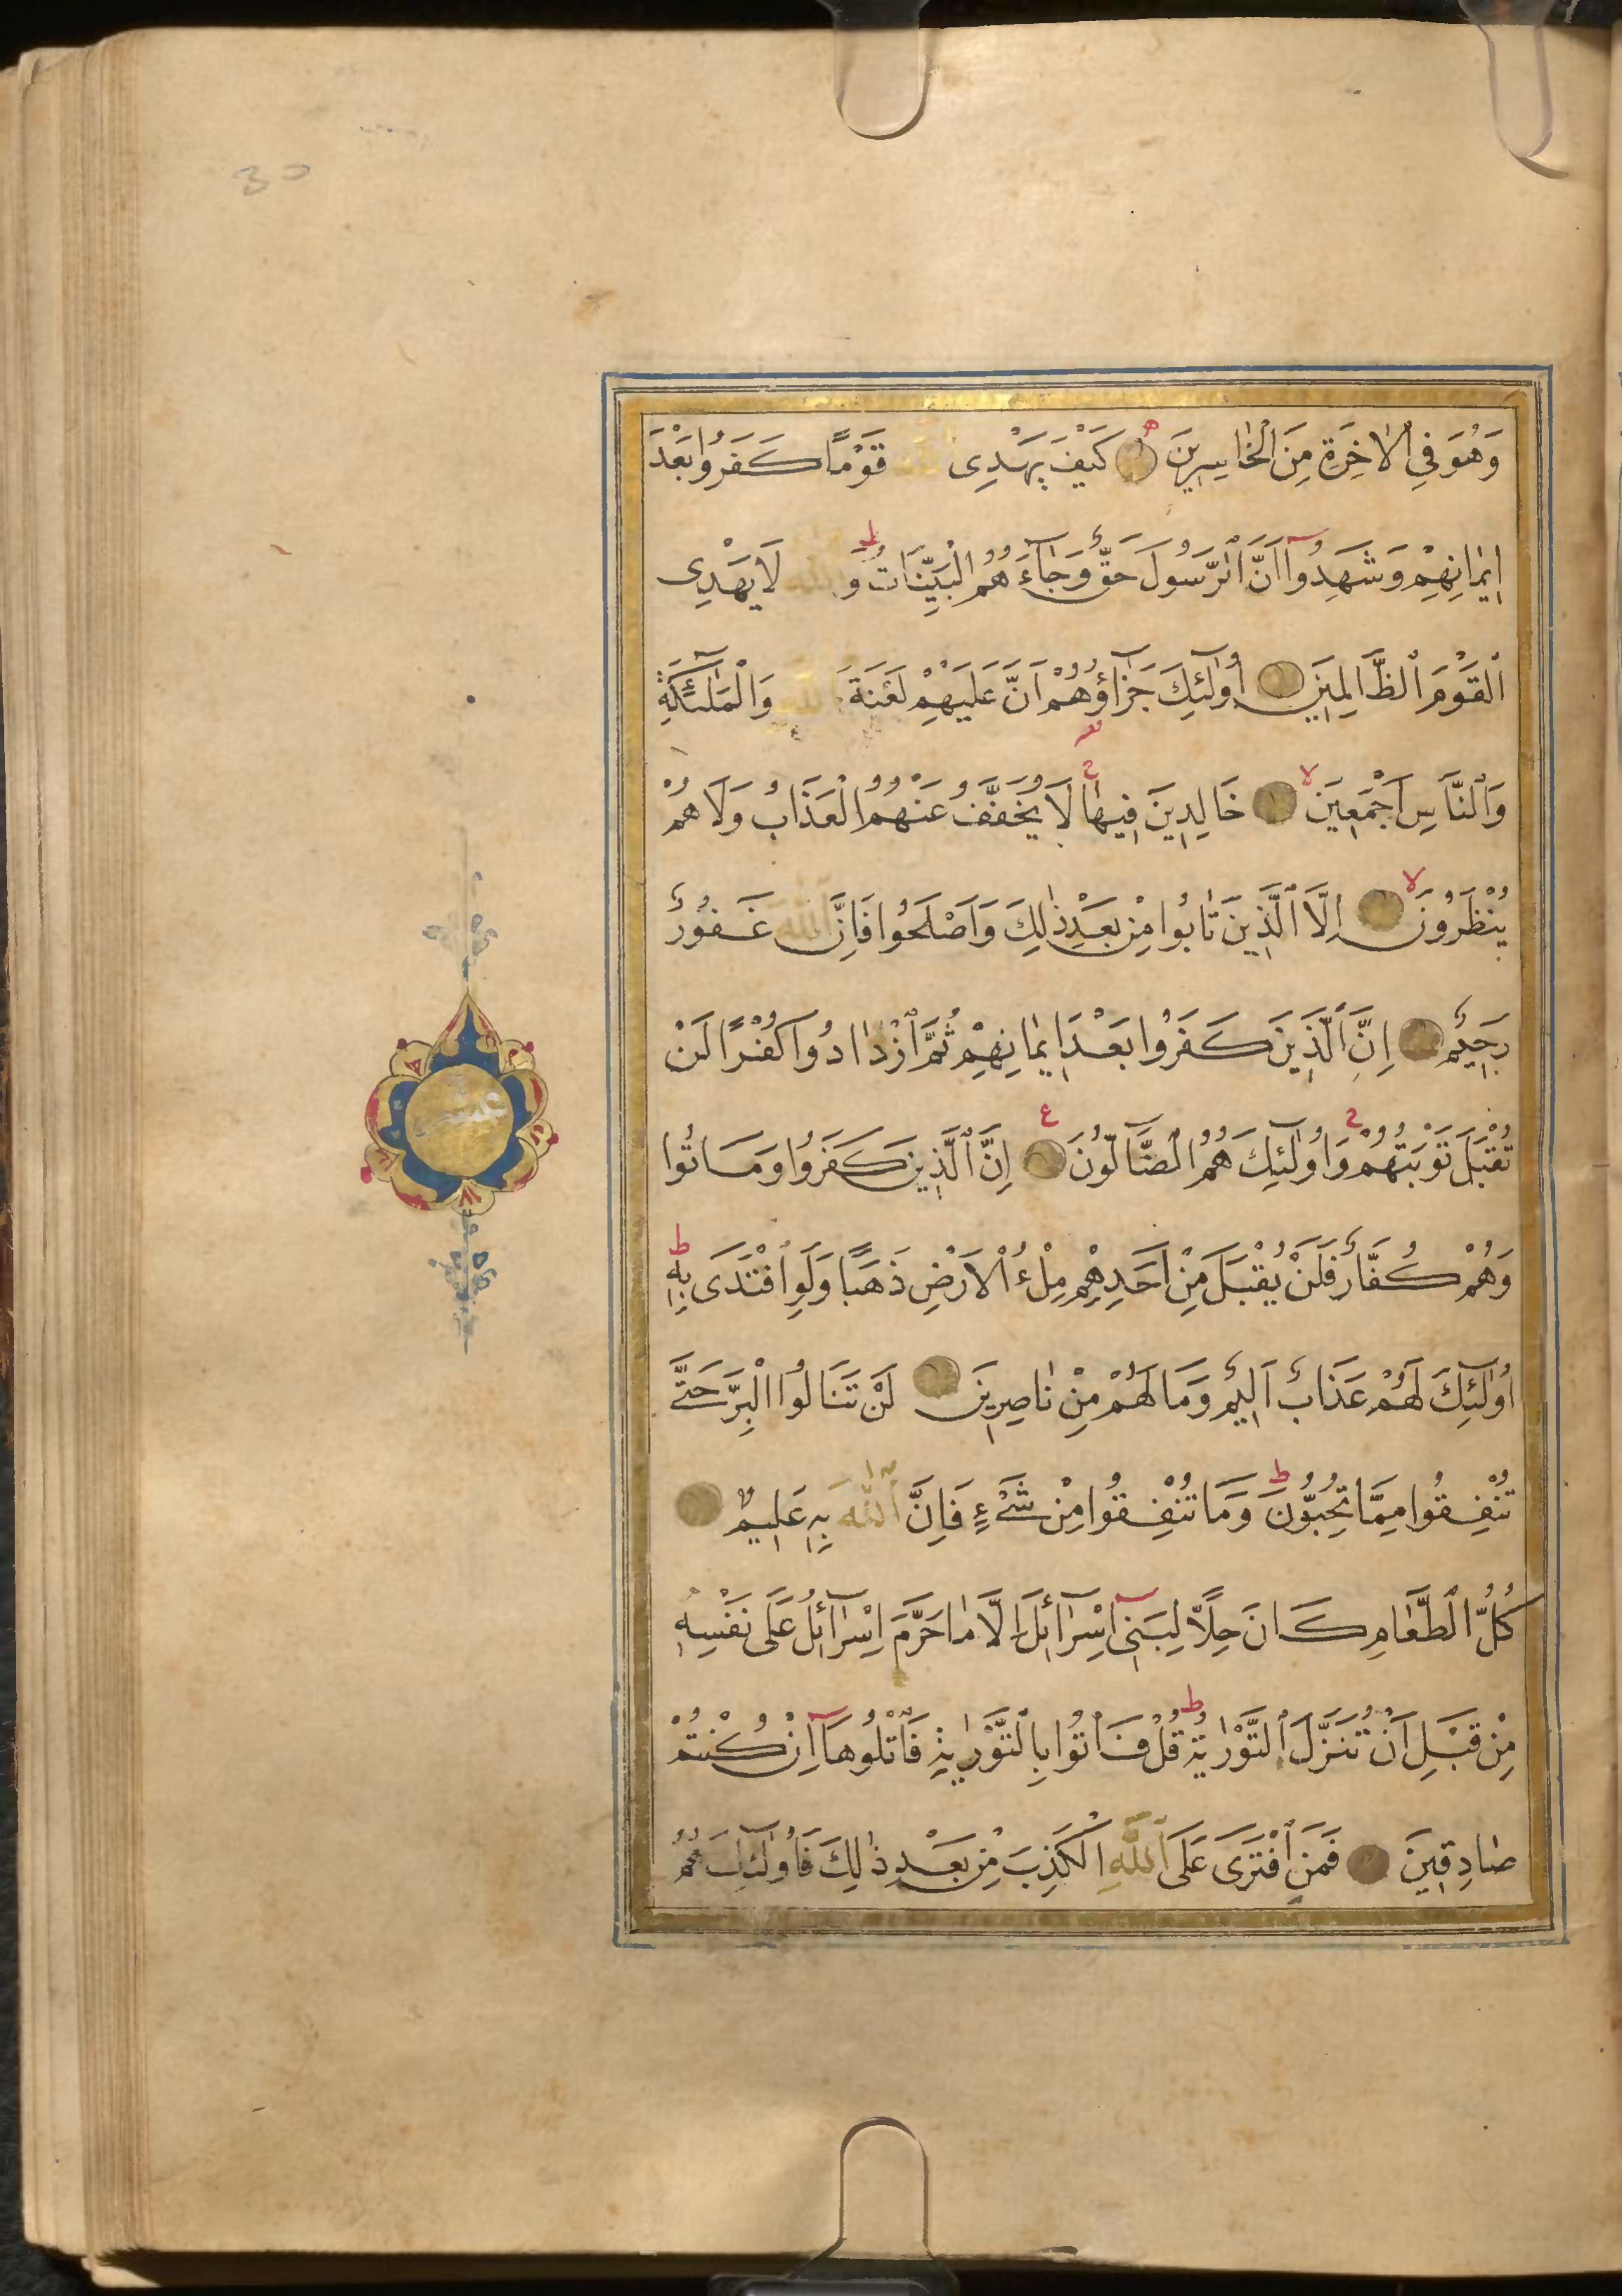 30
وَهُوَ فِي الْاٰخِرَةِ مِنَ الْخَاسِرِينَ كَيْفَ يَهْدِى اللّٰهُ قَوْمًا كَفَرُوا بَعْدَ
اِيمَانِهِمْ وَشَهِدُوا اَنَّ الرَّسُولَ حَقٌّ وَجَآءَهُمُ الْبَيِّنَاتُ ط وَاللّٰهُ لَا يَهْدِى
الْقَوْمَ الظَّالِمِينَ اُولٰٓئِكَ جَزَآؤُهُمْ اَنَّ عَلَيْهِمْ لَعْنَةَ اللّٰهِ وَالْمَلٰٓئِكَةِ
وَالنَّاسِ اَجْمَعِينَ لا خَالِدِينَ فِيهَا ج لَا يُخَفَّفُ عَنْهُمُ الْعَذَابُ وَلَا هُمْ
يُنْظَرُونَ لا اِلَّا الَّذِينَ تَابُوا مِنْ بَعْدِ ذٰلِكَ وَاَصْلَحُوا فَاِنَّ اللّٰهَ غَفُورٌ
رَحِيمٌ اِنَّ الَّذِينَ كَفَرُوا بَعْدَ اِيمَانِهِمْ ثُمَّ ازْدَادُوا كُفْرًا لَنْ
تُقْبَلَ تَوْبَتُهُمْ ج وَاُولٰٓئِكَ هُمُ الضَّآلُّونَ ع اِنَّ الَّذِينَ كَفَرُوا وَمَاتُوا
وَهُمْ كُفَّارٌ فَلَنْ يُقْبَلَ مِنْ اَحَدِهِمْ مِلْءُ الْاَرْضِ ذَهَبًا وَلَوِ افْتَدَى بِهِ ط
اُولٰٓئِكَ لَهُمْ عَذَابٌ اَلِيمٌ وَمَا لَهُمْ مِنْ نَاصِرِينَ لَنْ تَنَالُوا الْبِرَّ حَتَّى
تُنْفِقُوا مِمَّا تُحِبُّونَ ط وَمَا تُنْفِقُوا مِنْ شَىْءٍ فَاِنَّ اللّٰهَ بِهِ عَلِيمٌ
كُلُّ الطَّعَامِ كَانَ حِلًّا لِبَنِى اِسْرَآئِلَ اِلَّا مَا حَرَّمَ اِسْرَآئِلُ عَلَى نَفْسِهِ
مِنْ قَبْلِ اَنْ تُنَزَّلَ التَّوْرٰيةُ ط قُلْ فَاْتُوا بِالتَّوْرٰيةِ فَاتْلُوهَا اِنْ كُنْتُمْ
صَادِقِينَ فَمَنِ افْتَرَى عَلَى اللّٰهِ الْكَذِبَ مِنْ بَعْدِ ذٰلِكَ فَاُولٰٓئِكَ هُمُ
عشر